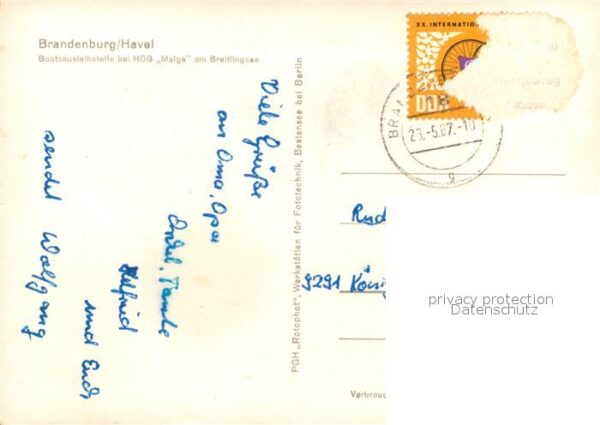 Brandenburg/Havel
Bootsausleihstelle bei HOG „Malge" am Breitlingsee
Viele Grüße
an Oma, Opa
Onkel, Tante
Helfried
und Euch
sendet Wolfgang
PGH „Rotophot", Werkstätten für Fototechnik, Bestensee bei Berlin
XX. INTERNATIO
DDR
BRAN
-5.67.-10
g
9291 König
Verbrauc
privacy protection
Datenschutz